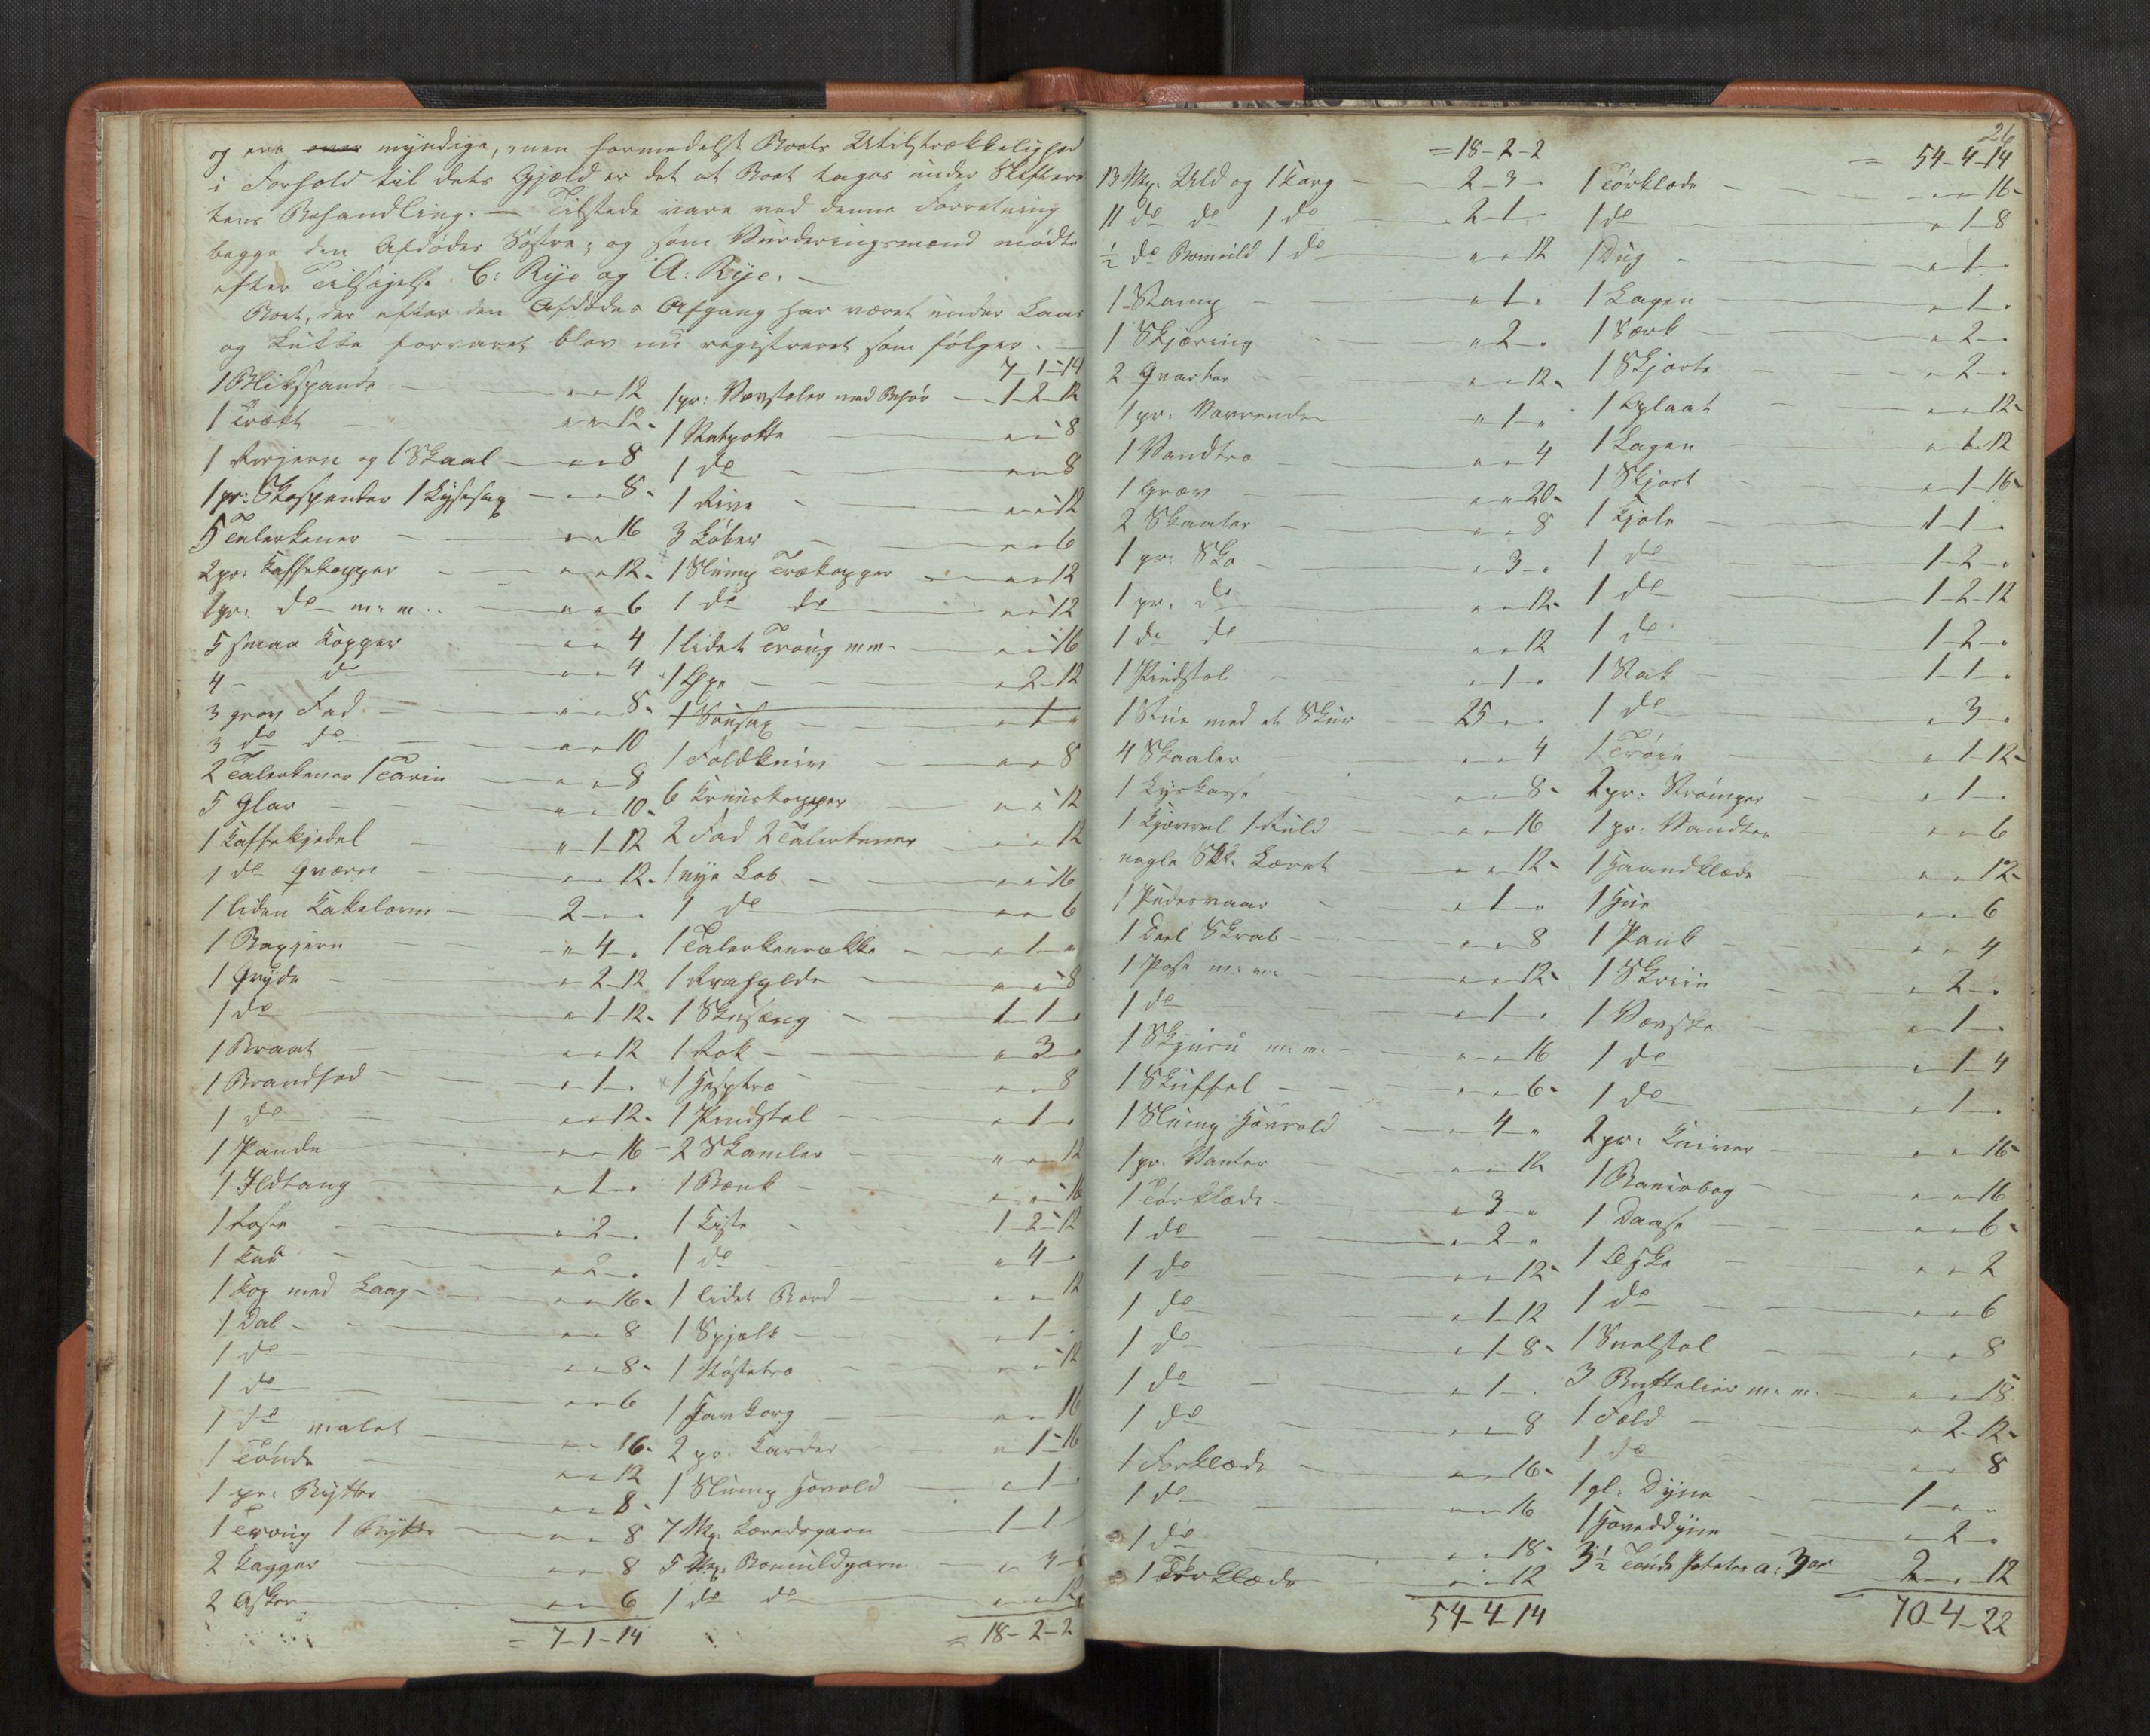 og ere over myndige, men formedelst Boets Utilstrækkelighed
i Forhold til dets Gjæld er det at Boet tages under Skifteret
tens Behandling. — Tilstede vare ved denne Forretning
begge den Afdødes Søstre; og som Vurderingsmænd mødte
efter Tilsigelse C: Rije og A: Rije. —
Boet, der efter den Afdødes Afgang har været under Laas
og Lukke forvaret blev nu registreret som følger. —
1 Blikspande — " " 12
1 Trækt — " " 12
1 Rivjern og 1 Skaal — " " 8
1 pr: Skospender 1 Lysesax — " " 8
5 Talerkener — " " 16
2 pr: Kaffekopper — " " 12
1 pr. do m: m. — " " 6
5 smaa Kopper " " 4
4 — do — " " 4
3 grov Fad — " " 8
3 do do — " " 10
2 Talerkener 1 Tarin — " " 8
5 Glas — " " 10
1 Kaffekjedel — " 1 12
1 do Qværn — " " 12
1 liden Kakelovn — 2 " "
1 Bagjern — " 4 "
1 Gryde — " 2 12
1 do — " 1 12
1 Braat — " " 12
1 Brandfod — " 1 "
1 do — " " 12
1 Pande — " " 16
1 Ildtang — " 1 "
1 — " 2 "
1 Kar — " 2 "
1 Kop med Laag — " " 16
1 Dal — " " 8
1 do — " " 8
1 do — " " 6
1 do malet — " " 16
1 Tønde — " " 12
1 pr: Bytter — " " 8
1 Troug 1 Bytte — " " 8
2 Kagger — " " 8
2 Asker — " " 6
= 7-1-14
7-1-14
1 pr: Vævstoler med Behør — 1-2-12
1 Vatpotte — " " 8
1 do — " " 8
1 Rive — " " 12
3 Løber — " " 6
1 Slump Trækopper — " " 12
1 do do — " " 12
1 lidet Troug m m — " " 16
1 — " 2-12
1 Sousax — " 1 "
1 Foldkniv — " " 8
6 Kruuskopper — " " 12
2 Fad 2 Talerkener — " " 12
1 nye Lob — " " 16
1 do — " " 6
1 Talerkenrække — " 1 "
1 — " " 8
1 Skuseng — 1-1 "
1 Rok — " 3 "
1 Hesptræ — " " 8
1 Pindstol — " 1 "
2 Skamler — " " 12
1 Bænk — " " 16
1 Kiste — 1-2-12
1 do — " 4 "
1 lidet Bord — " " 12
1 Spjælk — " 1 "
1 Støttetræ — " " 12
1 Havkorg — " " 16
2 pr. Karder — " 1-16
1 Slump Hovold — " 1 "
7 Mk. Lærredsgarn — 1-1
5 Mk. Bomuldgarn — " 3
1 do do — " " 12
= 18-2-2
26
= 18-2-2
13 Mk. Uld og 1 Korg — 2-3 "
11 do do 1 do — 2-1 "
½ do Bomuld 1 do — " " 12
1 Stamp — " 1 "
1 Skjæring — " 2 "
2 Qvarter — " " 12
1 pr. Vævrender — " 1 "
1 Vandtræ — " " 4
1 Græv — " " 20
2 Skaaler — " " 8
1 pr: Sko — " 3 "
1 pr. do — " " 12
1 do do — " " 12
1 Pindstol — " 1 "
1 Stue med et Skur 25 " "
4 Skaaler — " " 4
1 — " " 8
1 Kjørrel 1 Kuld — " " 16
nogle Stk. Læret — " " 12
1 Pudevaar — " 1 "
1 Deel Skrab — " " 8
1 Pose m: m: — " " 12
1 do — " 1 "
1 m: m: — " " 16
1 Skuffel — " " 6
1 Slump Hovold — " 4 "
1 pr. Vanter — " " 12
1 Tørklæde — " 3 "
1 do — " 2 "
1 do — " " 12
1 do — " 1-12
1 do — " 1-8
1 do — " 1 "
1 do — " " 8
1 Forklæde — " " 16
1 do — " " 16
1 do — " " 18
1 Tørklæde — " " 12
54-4-14
= 54-4-14
1 Tørklæde — " " 16
1 do — " 1-8
1 Dug — " 1 "
1 Lagen — " 1 "
1 Særk — " 2 "
1 Skjorte — " 2 "
1 — " " 12
1 Lagen — " 1-12
1 Skjort — " 1-16
1 Kjole — 1-1 "
1 do — 1-2 "
1 do — 1-2-12
1 do — 1-2 "
1 Stak — 1-1 "
1 do — " 3 "
1 Trøie — " 1-12
2 pr: Strømper — " 1 "
1 pr: Vandter — " " 6
1 Haandklæde — " " 12
1 Hue — " " 6
1 Pank — " " 4
1 Skriin — " 2 "
1 Væske — " 1 "
1 do — " 1-4
1 do — " 1 "
2 pr: Kniver — " " 16
1 Bønnebog — " " 16
1 Daase — " " 6
1 Æske — " " 2
1 do — " " 6
1 Snelstol — " " 8
3 Buttelier m: m: — " " 18
1 Fæld — " 2-12
1 do — " " 8
1 gl. Dyne — 1 " "
1 Hoveddyne — " 2 "
3½ Tønde Poteter a: 3 ort 2 " 12
70-4-22